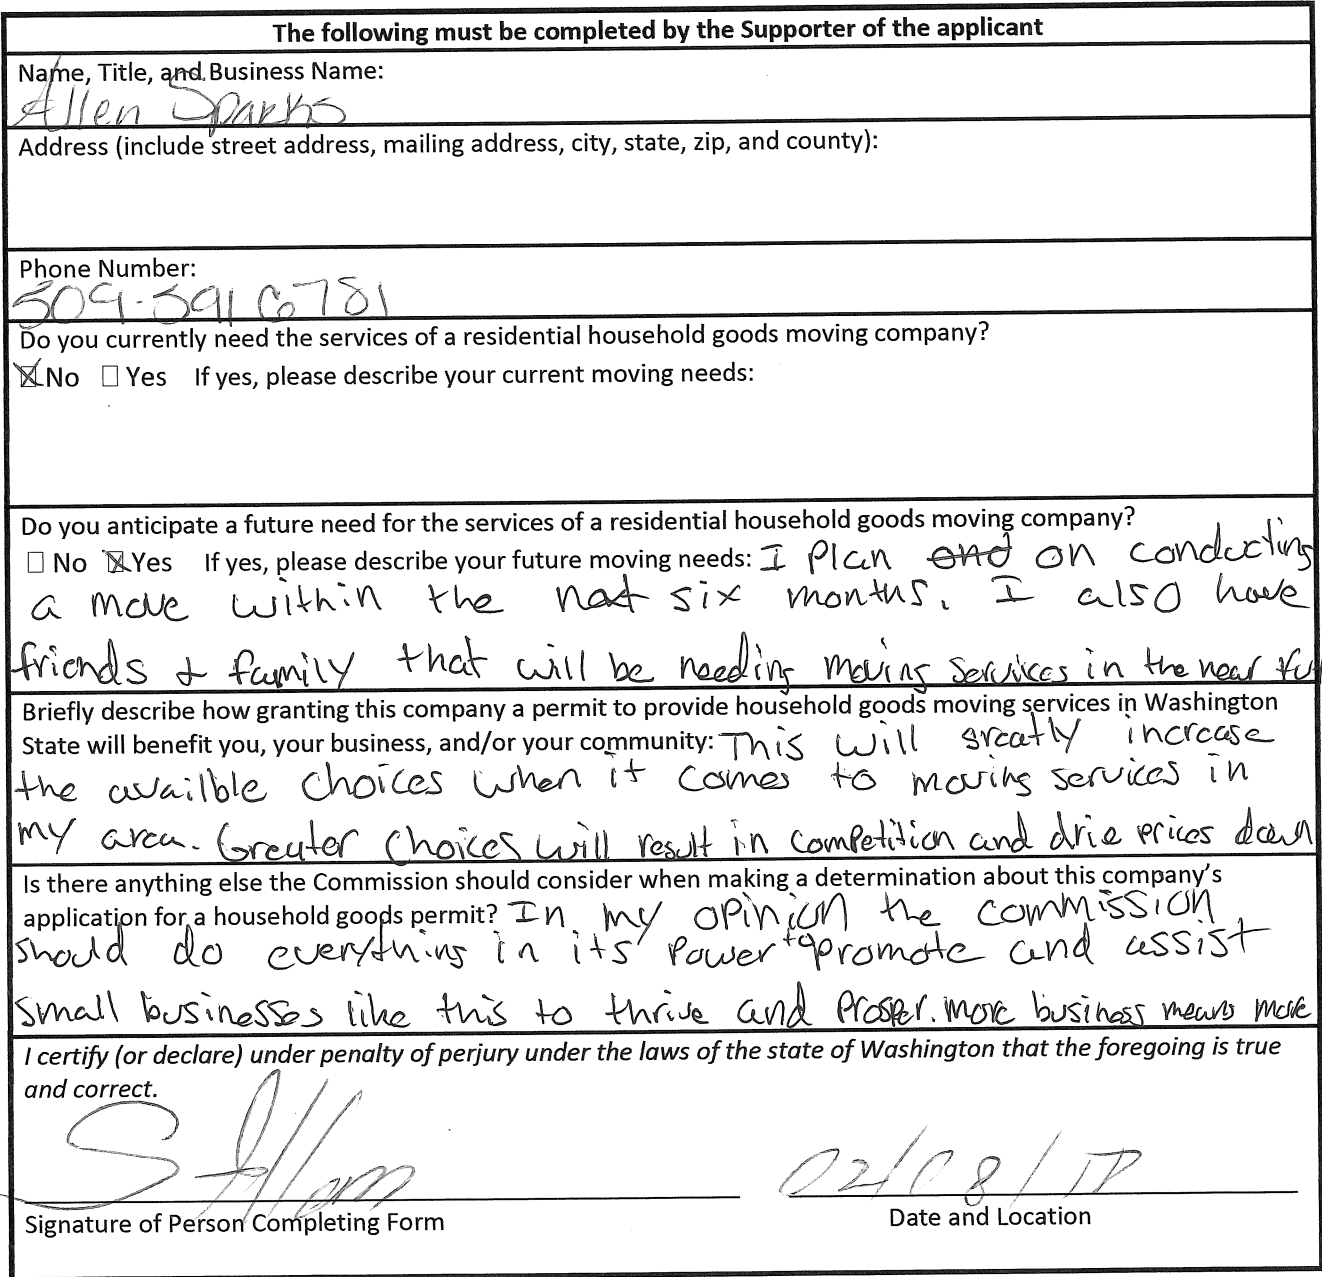 The following must be completed by the Supporter of the applicant
Name, Title, and Business Name:
Allen Sparks
Address (include street address, mailing address, city, state, zip, and county):
Phone Number:
509-591 6781
Do you currently need the services of a residential household goods moving company?
☒ No ☐ Yes If yes, please describe your current moving needs:
Do you anticipate a future need for the services of a residential household goods moving company?
☐ No ☒ Yes If yes, please describe your future moving needs: I Plan and on conducting
a move within the next six months. I also have
friends & family that will be needing moving services in the near fu
Briefly describe how granting this company a permit to provide household goods moving services in Washington
State will benefit you, your business, and/or your community: This will greatly increase
the availble choices when it comes to moving services in
my area. Greater choices will result in competition and drie prices down
Is there anything else the Commission should consider when making a determination about this company's
application for a household goods permit? In my opinion the commission
should do everything in its power to promote and assist
small businesses like this to thrive and prosper. more business means more
I certify (or declare) under penalty of perjury under the laws of the state of Washington that the foregoing is true
and correct.
02/08/
Signature of Person Completing Form
Date and Location